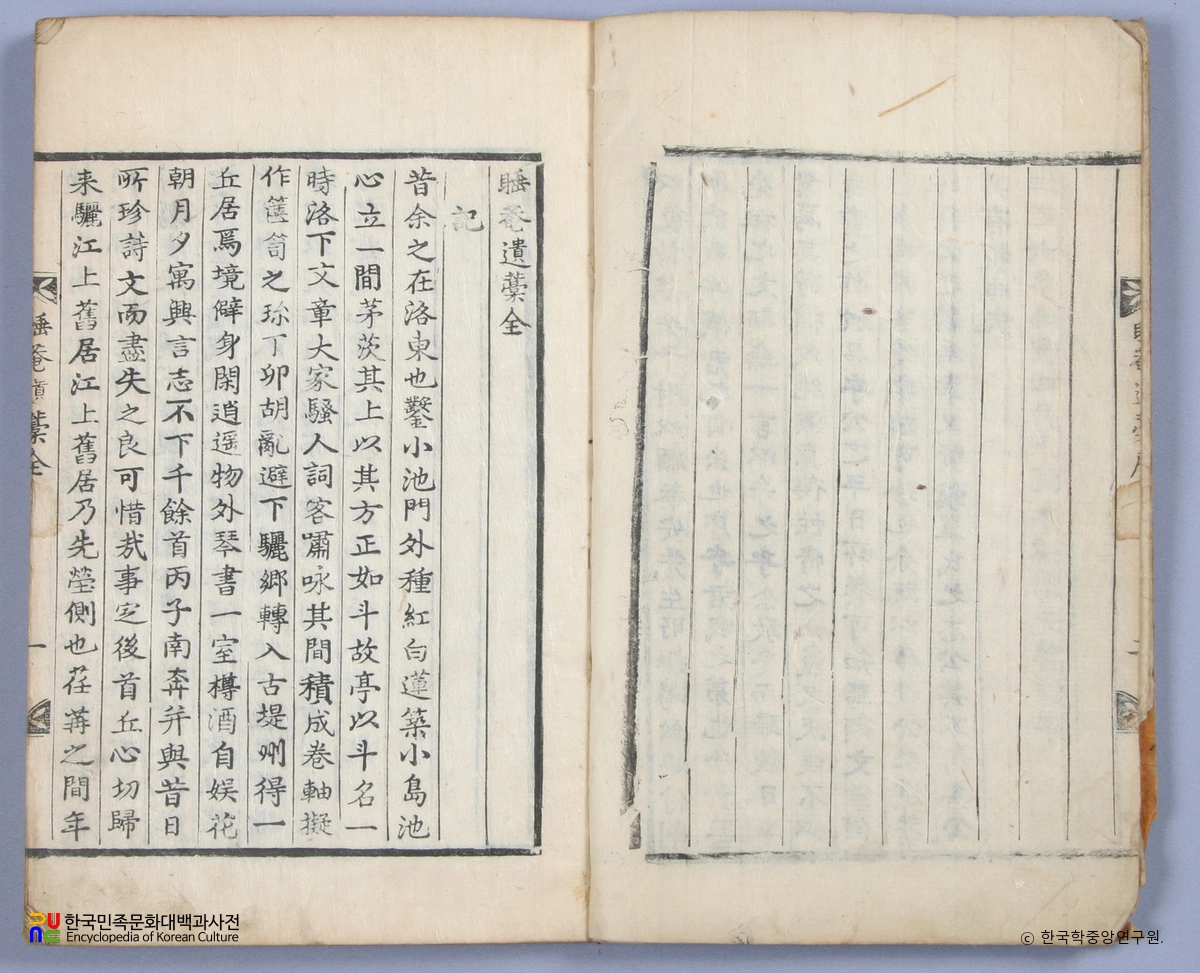 睡菴遺藁全
記
昔余之在洛東也鑿小池門外種紅白蓮築小島池
心立一間茅茨其上以其方正如斗故亭以斗名一
時洛下文章大家騷人詞客嘯咏其間積成卷軸擬
作篋笥之珎丁卯胡亂避下驪鄉轉入古堤州得一
丘居焉境僻身閑逍遥物外琴書一室樽酒自娱花
朝月夕寓興言志不下千餘首丙子南奔并與昔日
所珍詩文而盡失之良可惜㢤事定後首丘心切歸
来驪江上舊居江上舊居乃先塋側也荏苒之間年
睡菴遺藁全
一
한국민족문화대백과사전
Encyclopedia of Korean Culture
© 한국학중앙연구원.